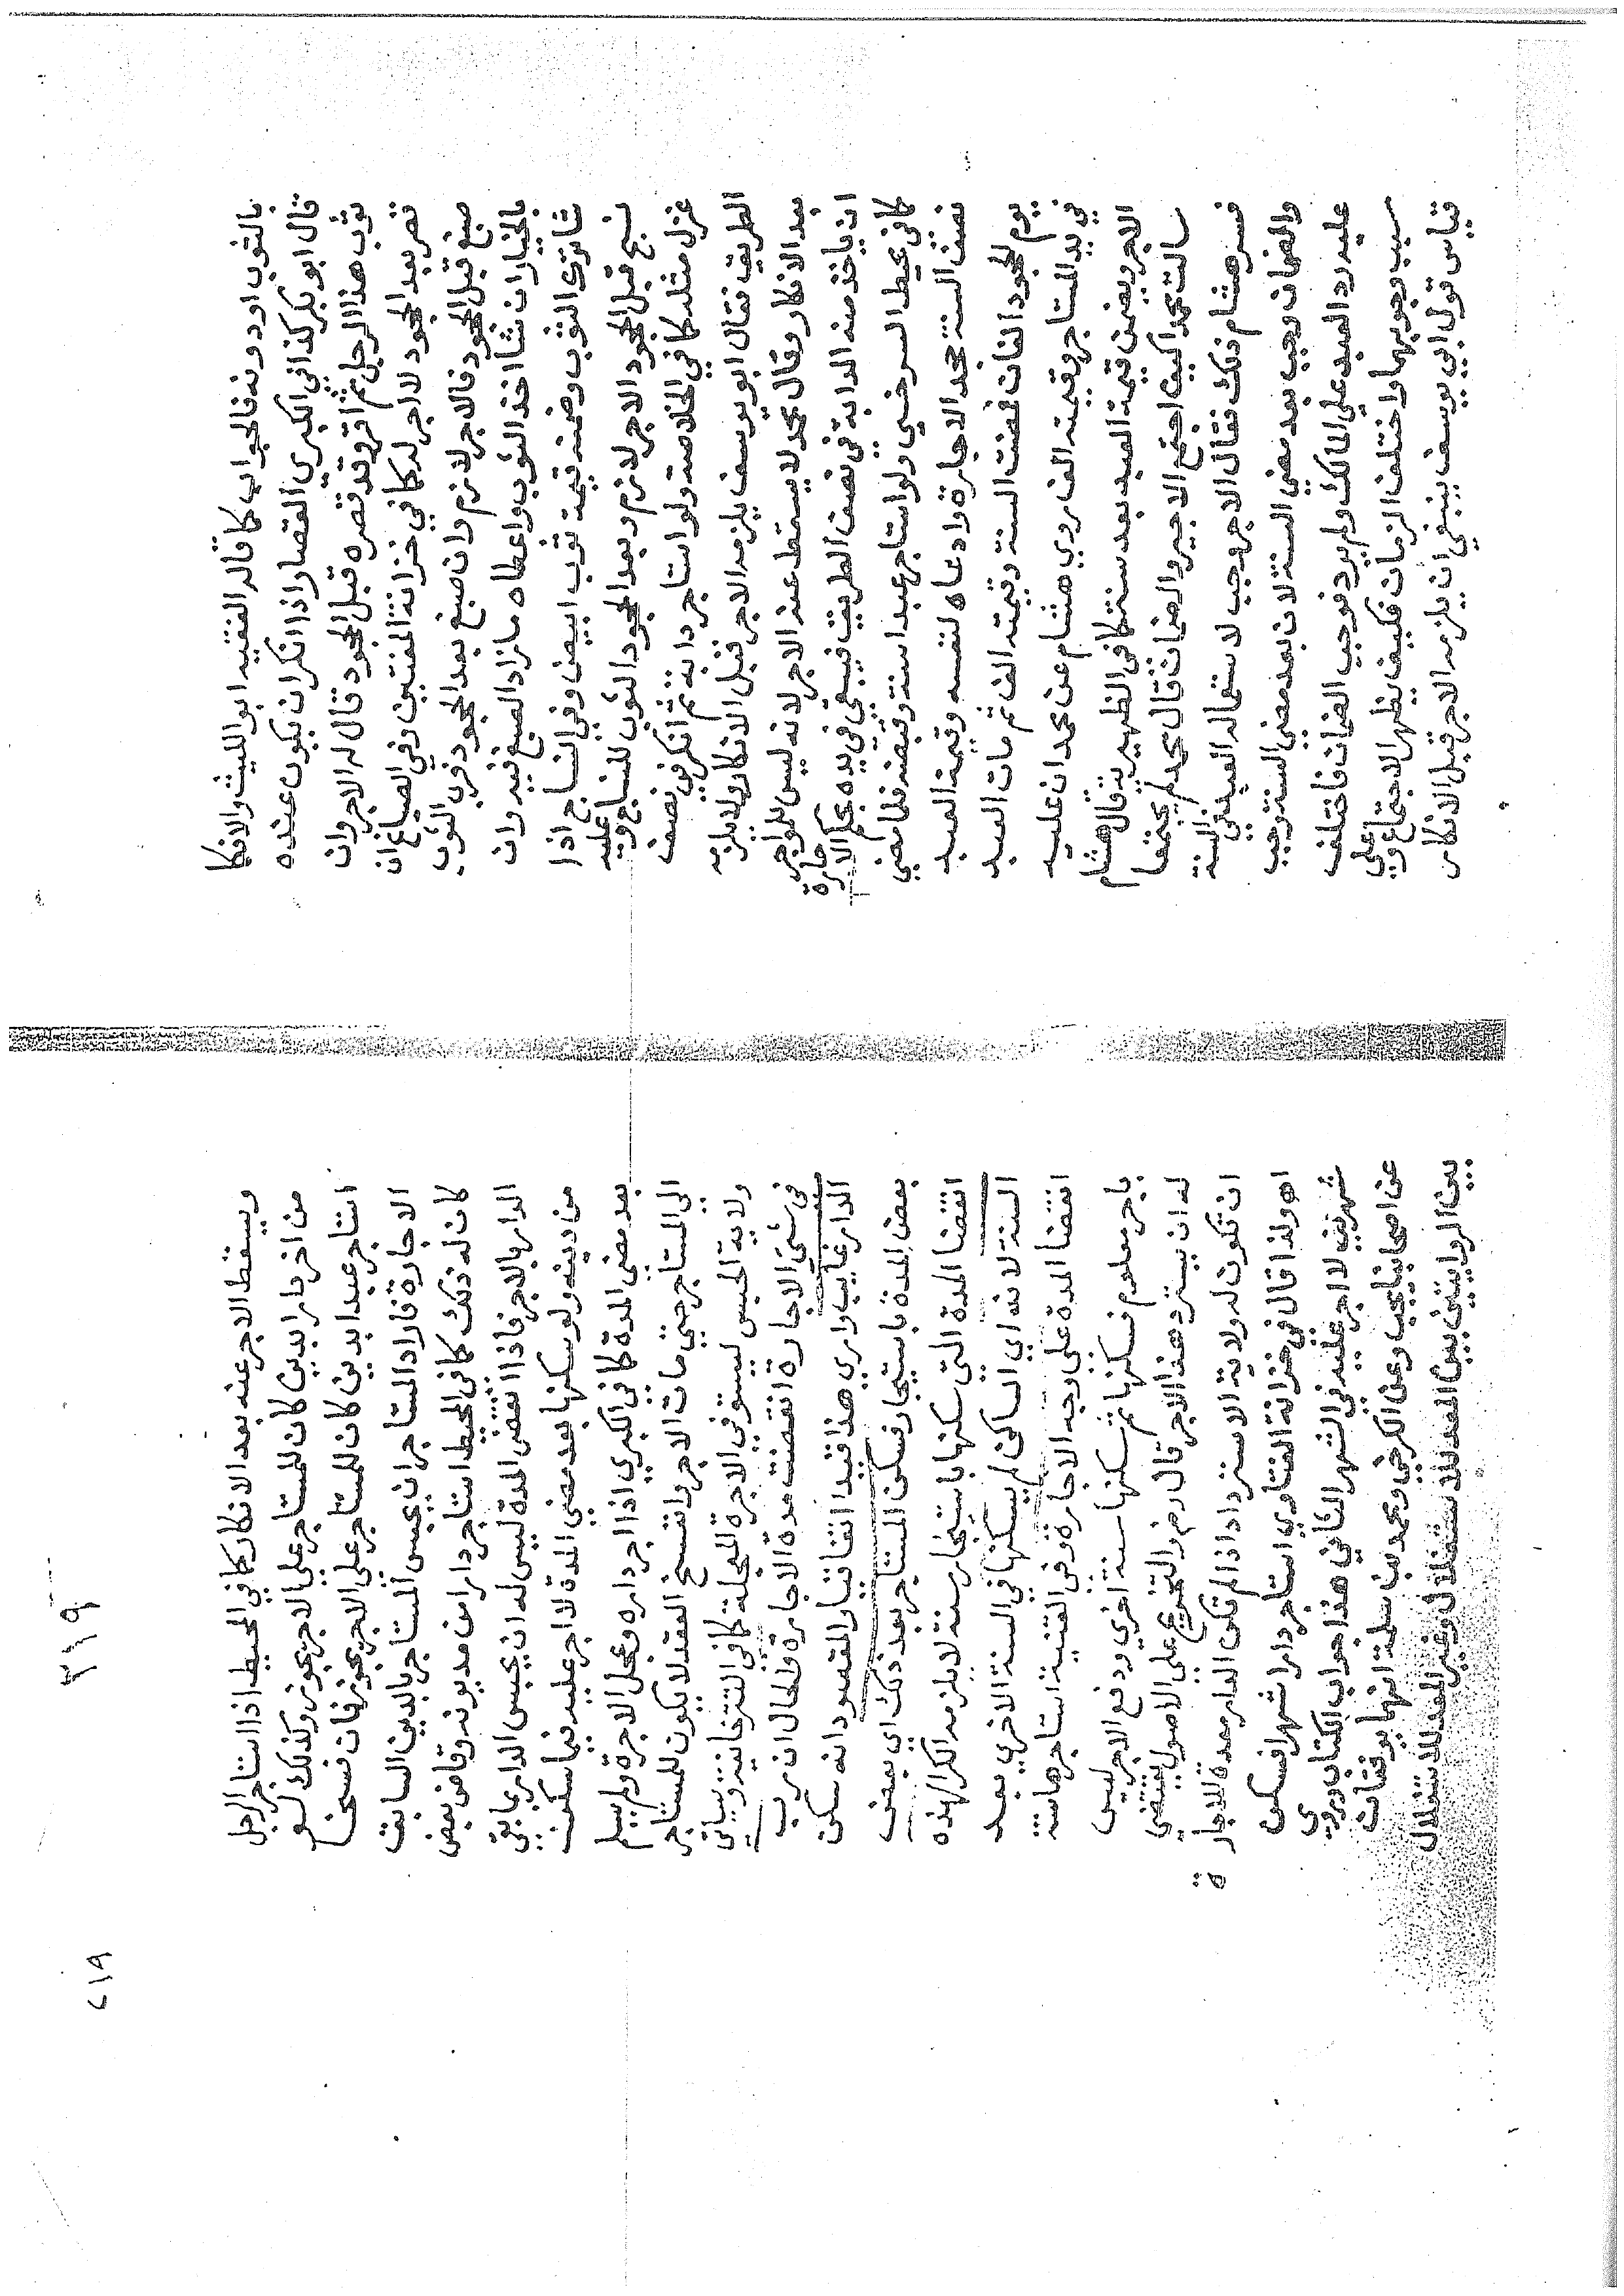 بالثوب اودونه فالجواب كما قاله الفقيه ابو الليث والانكا
قال ابو بكر كذا في الكبري القصار اذا انكر ان يكون عنده
ثوب هذا الرجل ثم اقر وقد قصره قبل الجحود قال له الاجر وان
قصر بعد الجحود لا اجر له كما في خزانة المفتين وفي الصباغ ان
صبغ قبل الجحود فالاجر لازم وان صبغ بعد الجحود فرب الثوب
بالخيار ان شا اخذ الثوب واعطاه ما زاد الصبغ فيه وان
شا ترك الثوب وضمنه قيمة ثوب ابيض وفي النساج اذا
نسج قبل الجحود الاجر لازم وبعد الجحود الثوب للنساج وعليه
غزل مثله كما في الخلاصة ولو استاجر دابة ثم انكر في نصف
الطريق فقال ابو يوسف يلزمه الاجر قبل الانكار ولا يلزمه
بعد الانكار وقال محمد لا يسقط عنه الاجر لانه ليس للمواجر
ان ياخذ منه الدابة في نصف الطريق فيبقي في يده بحكم الاجارة
كما في محيط السرخسي ولو استاجر عبدا سنة وقبضه فلما مضي
نصف السنة جحد الاجارة وادعاه لنفسه وقيمة العبد
يوم الجحود الفان فمضت السنة وقيمته الف ثم مات العبد
في يد المستاجر وقيمته الف روي هشام عن محمد ان عليه
الاجر ويضمن قيمة العبد بعد سنة كما في الظهيرية قال هشام
سالت محمدا كيف اجتمع الاجر والضمان قال محمد لم يجتمعا
فسر هشام ذلك فقال الاجر وجب لاستعماله العبد في السنة
والضمان وجب بعد مضي السنة لان بعد مضي السنة وجب
عليه رد العبد علي المالك ولم يرد فوجب الضمان فاختلف
سبب وجوبهما واختلف الزمان فكيف يظهر الاجتماع وعلي
قياس قول ابي يوسف ينبغي ان يلزمه الاجر قبل الانكار
٣١٩
٢١٩
ويسقط الاجر عنه بعد الانكار كما في المحيط اذا استاجر الرجل
من اخر دارا بدين كان للمستاجر علي الاجر يجوز وكذلك لو
استاجر عبدا بدين كان للمستاجر علي الاجر يجوز فان فسخا
الاجارة فاراد المستاجر ان يحبس المستاجر بالدين السابق
كان له ذلك كما في المحيط استاجر دارا من مديونه وقاض بعض
الدار بالاجر فاذا انقضي المدة ليس له ان يحبس الدار بما بقي
من دينه ولو سكنها بعد مضي المدة لا اجر عليه فيما سكن
بعد مضي المدة كما في الكبري اذا اجر داره وعجل الاجرة ولم يسلم
الي المستاجر حتي مات الاجر وانفسخ العقد لا يكون للمستاجر
ولاية الحبس ليستوفي الاجرة المعجلة كما في التترخانية وسياتي
في شتي الاجارة انقضت مدة الاجارة وطال ان رب
الدار غايب واري هذا قيدا اتفاقيا والمقصود انه سكن
بعض المدة باستيجار فسكن المستاجر بعد ذلك اي بعض
انقضا المدة التي سكنها باستيجار سنة لا يلزمه الكرا لهذه
السنة لانه اي الساكن لم يسكنها في السنة الاخري بعد
انقضا المدة علي وجه الاجارة وفي القنية استاجرها سنة
باجر معلوم فسكنها ثم سكنها سنة اخري ودفع الاجر ليس
له ان يسترد هذا الاجر قال رضه والتخريج علي الاصول يقتضي
ان تكون له ولاية الاسترداد اذا لم تكن الدار معدة للاجارة
اه ولذا قال في خزانة الفتاوي استاجر دارا شهرا فسكن
شهرين لا اجر عليه في الشهر الثاني هذا جواب الكتاب وروي
عن اصحابنا يجب وعن الكرخي ومحمد بن سلمة انهما يوفقان
بين الروايتين بين المعد للاستغلال وغير المعد للاستغلال